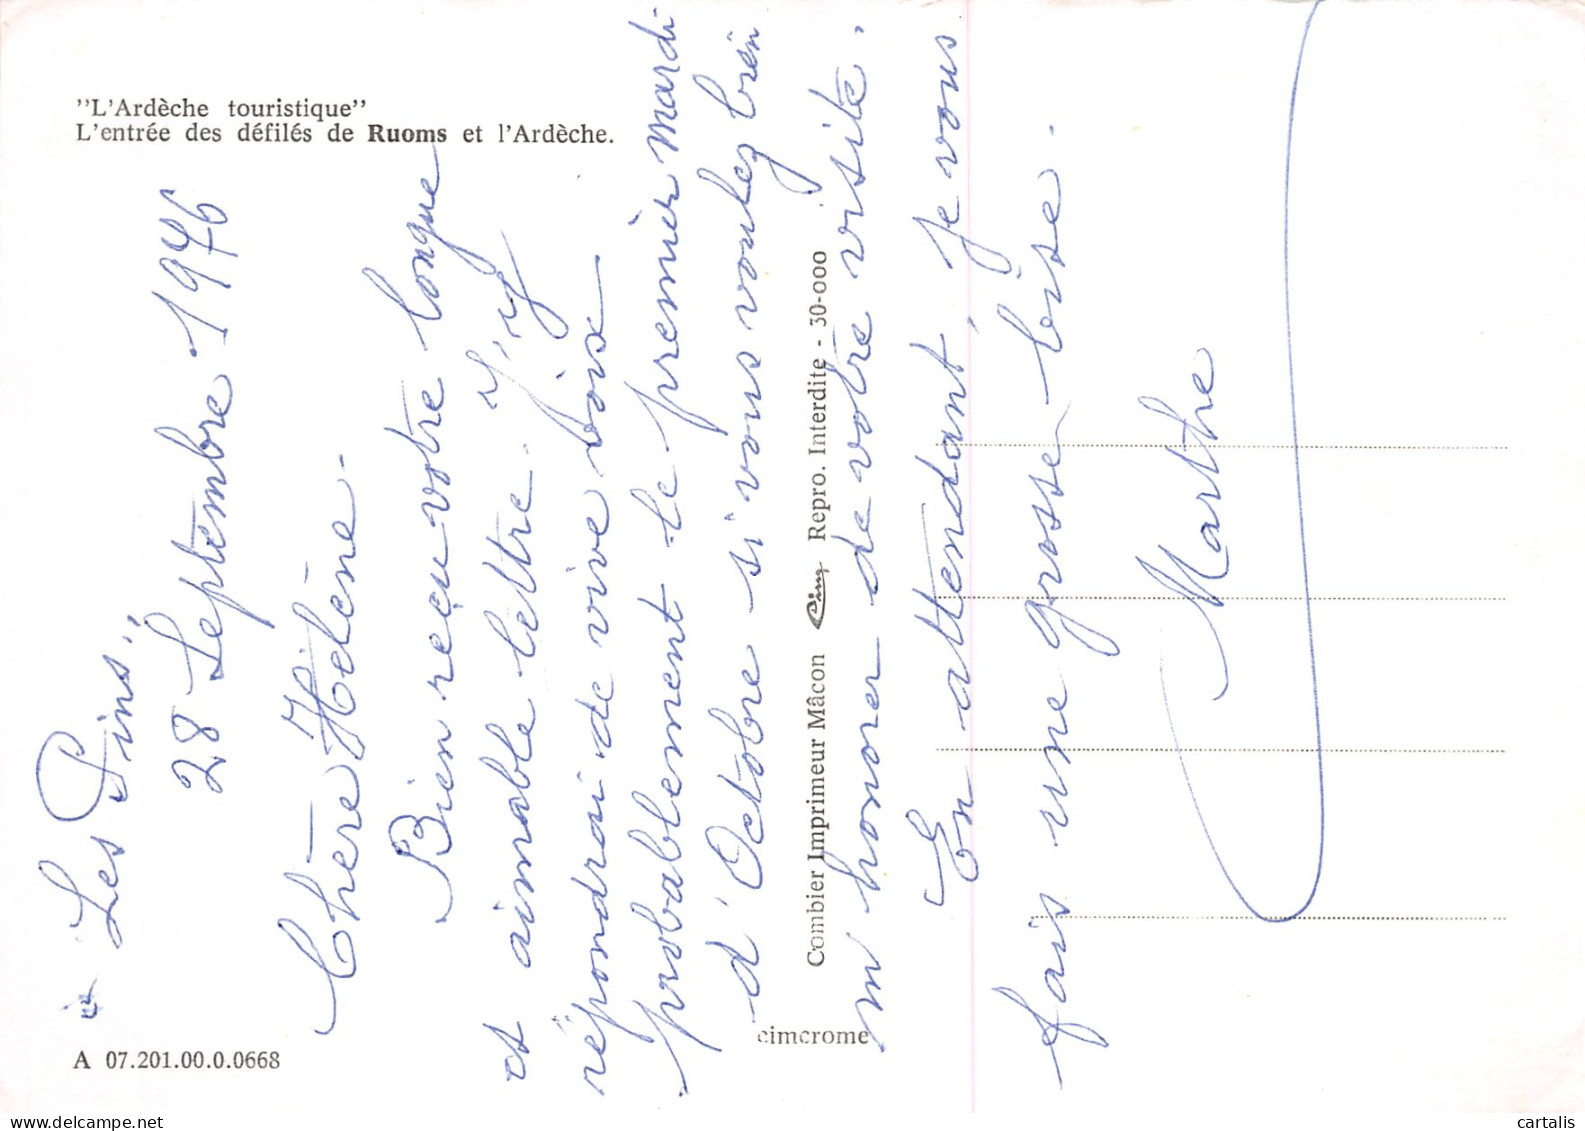 "L'Ardèche touristique"
L'entrée des défilés de Ruoms et l'Ardèche.
"Les Pins",
28 Septembre 1976
Chère Hélène.
Bien reçu votre longue
et aimable lettre. J'y
répondrai de vive voix
probablement le premier mardi
d'Octobre si vous voulez bien
m'honorer de votre visite.
En attendant, je vous
fais une grosse bise.
Marthe
Combier Imprimeur Mâcon Cim Repro. Interdite - 30-000
cimcrome
A 07.201.00.0.0668
cartalis